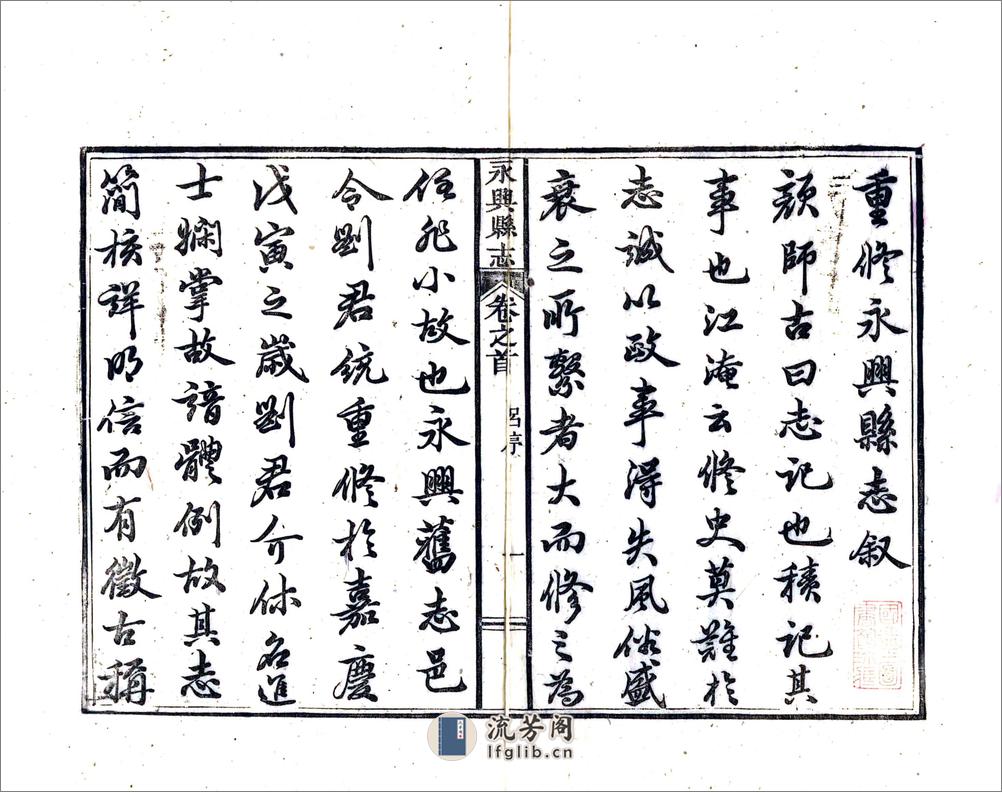 重修永興縣志叙
顔師古曰志記也積記其
事也江淹云修史莫難於
志誠以政事得失風俗盛
衰之所繫者大而修之為
永興縣志 卷之首 呂序 一
任非小故也永興舊志邑
令劉君統重修於嘉慶
戊寅之歲劉君介休名進
士嫻掌故諳體例故其志
簡核詳明信而有徵古稱
流芳阁
lfglib.cn